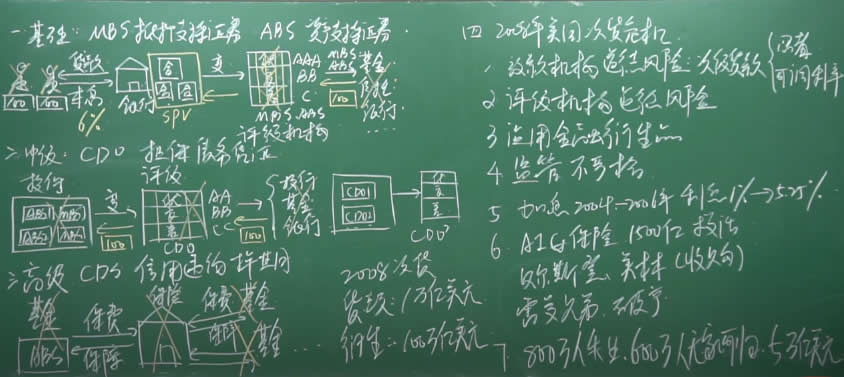 一 基础: MBS 抵押支持证券 ABS 资产支持证券
贷款
年息
6%
银行
100 100
合 合 合
SPV
变
优
AAA
BB
C
MBS ABS
评级机构
MBS
ABS
100
基金
保险
银行
二 中级: CDO 担保债务凭证
投行
评级
ABS1 MBS1
变
100
优
差
AA
BB
CC
CDO
100
投行
基金
银行
CDO1
CDO2
优
差
CDO²
三 高级 CDS 信用违约掉期
基金
MBS
保费
保障
保险
保费
保障
基金
基金
2008 次贷
贷款: 1万亿美元
衍生: 100万亿美元
四 2008年美国次贷危机
1 放款机构 追逐风险: 次级贷款
可调利率
2 评级机构 追逐风险
3 滥用金融衍生品
4 监管不严格
5 加息 2004→2006年 利息1%→5.25%
6. AIG保险 1500亿 救活
贝尔斯登、美林 (收购)
雷曼兄弟
7. 800万人失业. 600万人无家可归. 5万亿美元